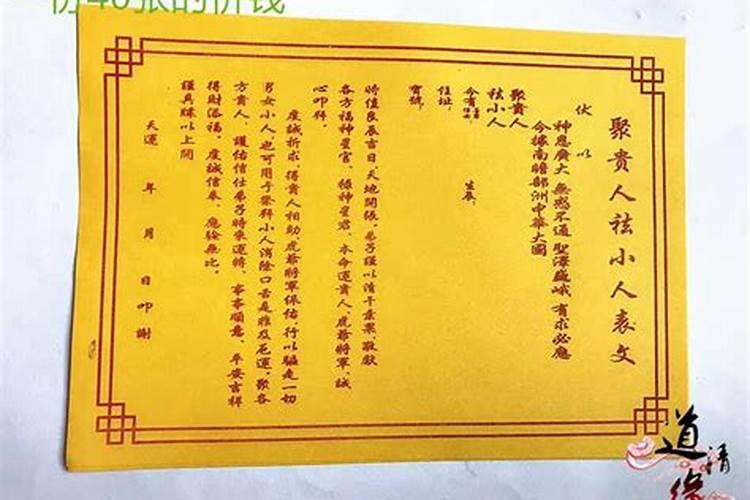 一份40张的价钱
聚貴人祛小人表文
伏以
神恩廣大 無惑不通 聖澤盛峨 有求必應
今據南瞻部洲中華大國
聚貴人
祛小人
今有
住址
生辰
寶號
時值良辰吉日,天地開張,弟子謹以清干素果 敬獻
各方福神星官、祿神星君、本命運貴人、虎爺將軍,誠
心叩拜。
虔誠祈求,得貴人相助虎爺將軍保佑 行以驅走一切
男女小人,也可用于祭拜小人消除口舌是雅及厄運,聚各
方貴人,護佑信仕弟子時來運轉、事事順意、平安吉祥
得財添福。虔誠信奉、應驗無比。
謹具牒以上聞
天運 年 月 日叩謝
道
清
缘